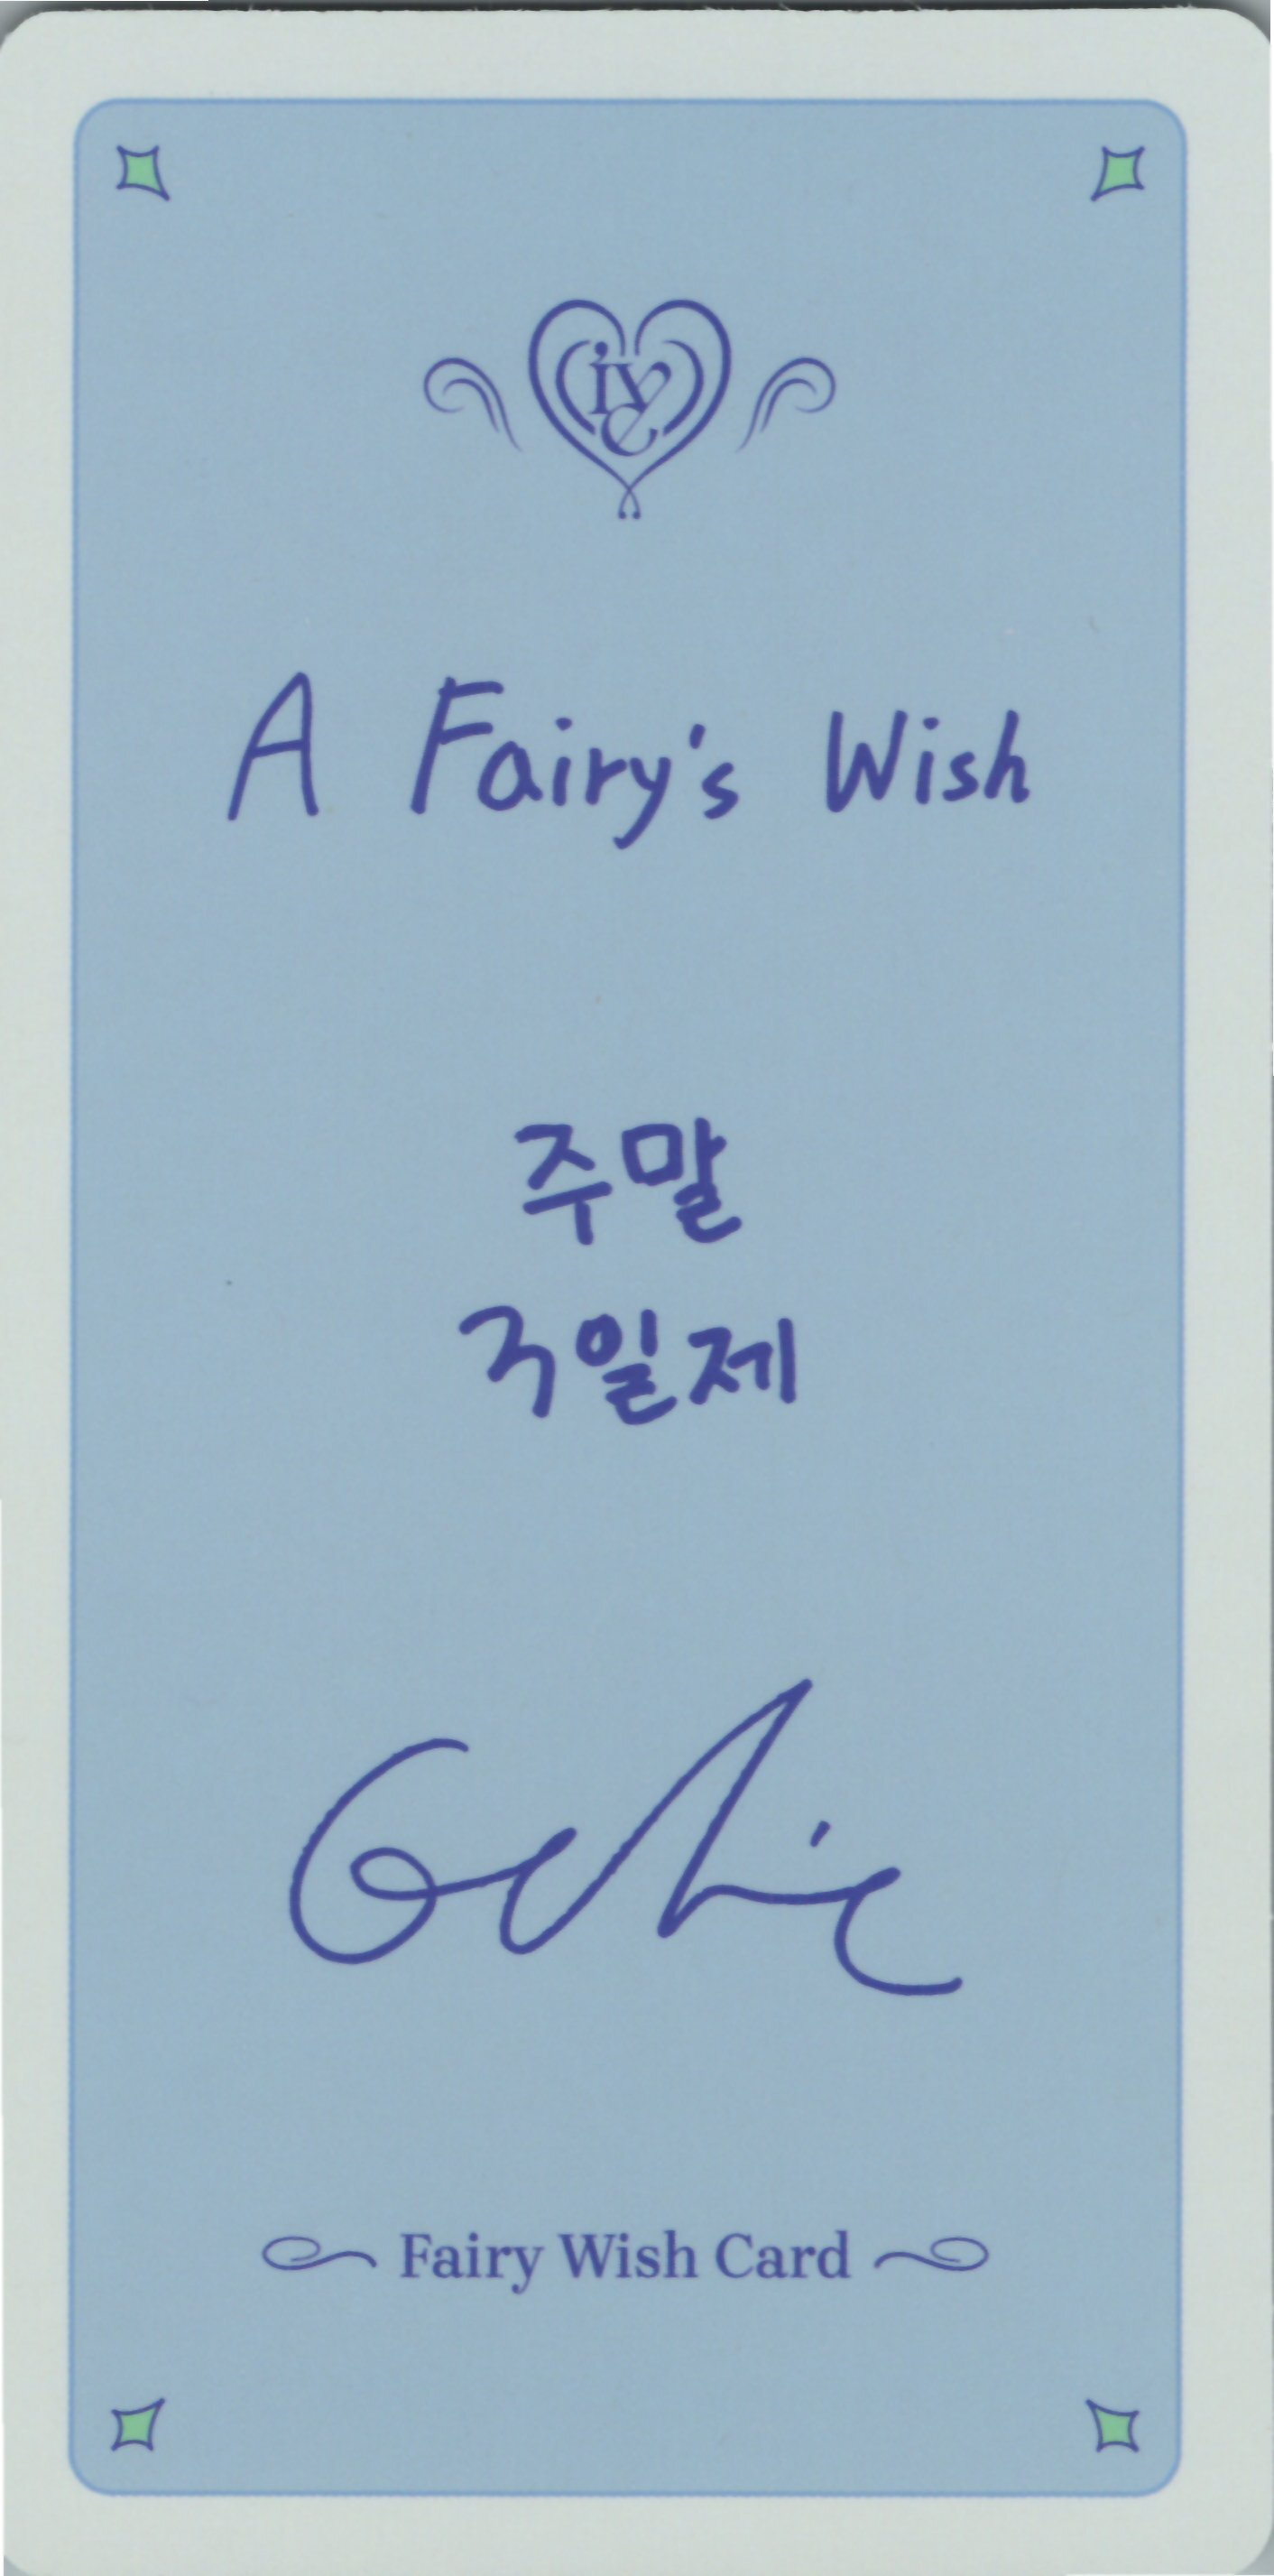 ive
A Fairy's Wish
주말
3일제
Fairy Wish Card